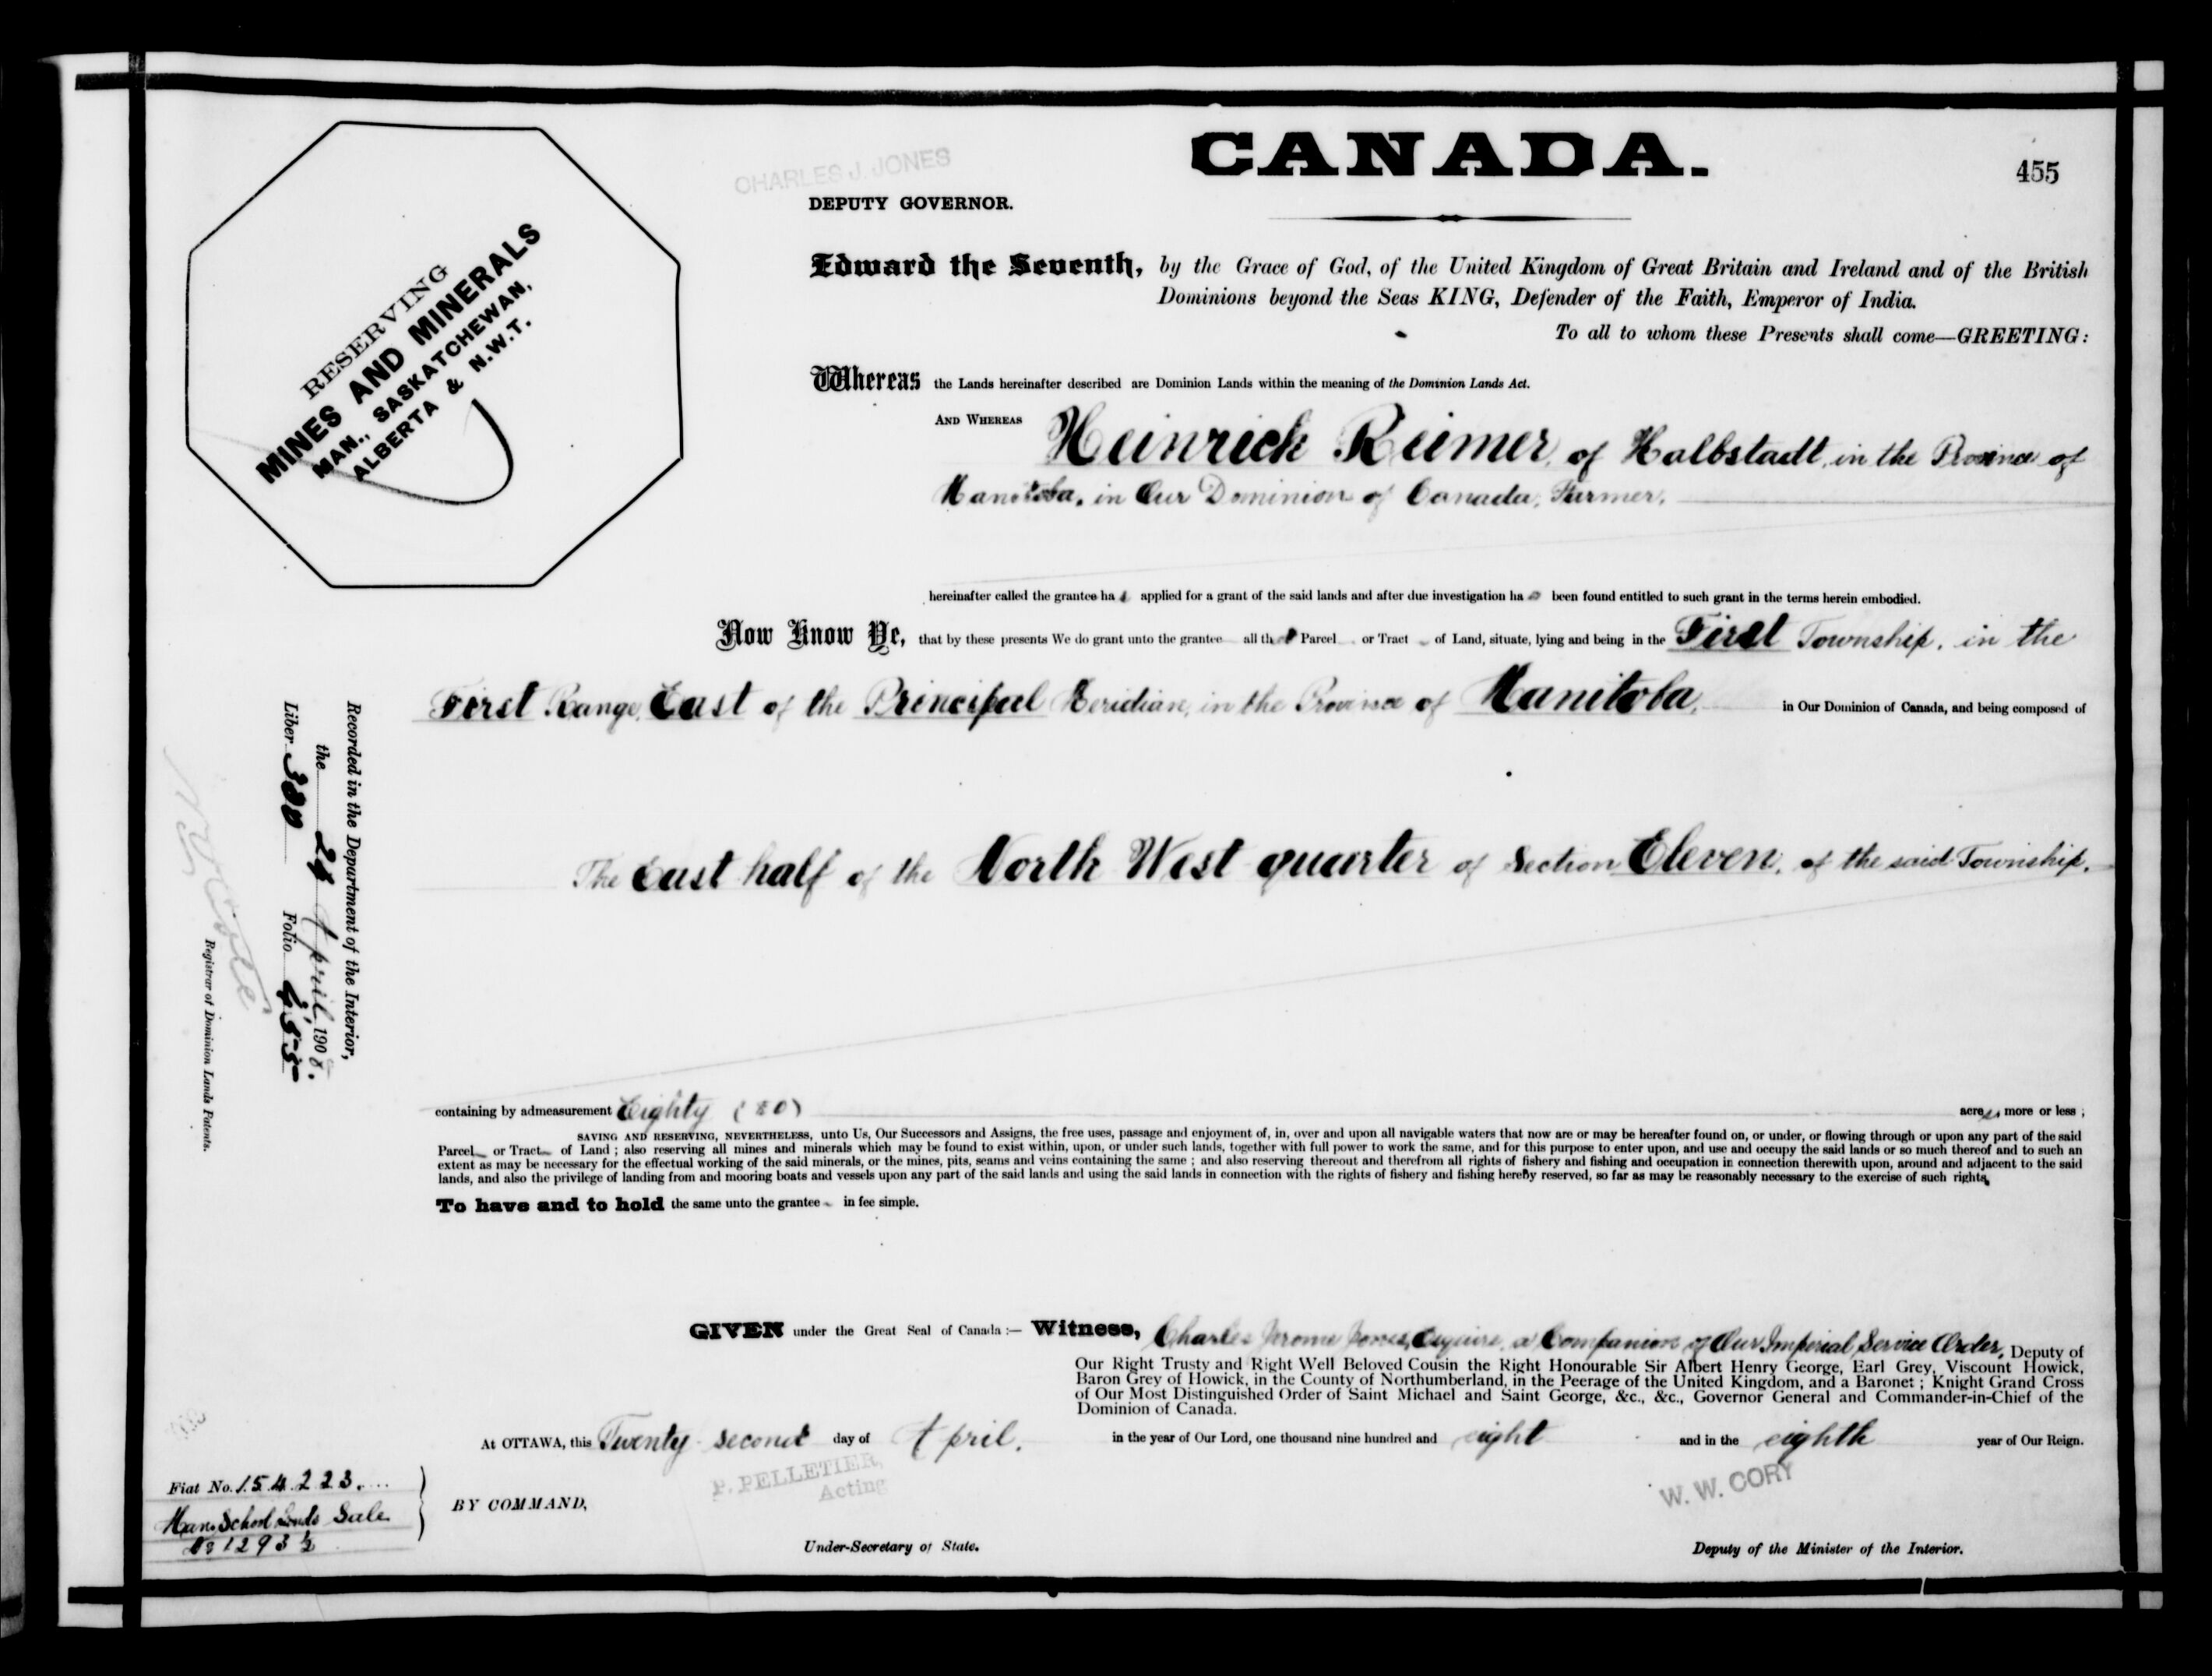 CANADA.
455
CHARLES J. JONES
DEPUTY GOVERNOR.
RESERVING
MINES AND MINERALS
MAN., SASKATCHEWAN,
ALBERTA & N.W.T.
Edward the Seventh, by the Grace of God, of the United Kingdom of Great Britain and Ireland and of the British
Dominions beyond the Seas KING, Defender of the Faith, Emperor of India.
To all to whom these Presents shall come—GREETING:
Whereas the Lands hereinafter described are Dominion Lands within the meaning of the Dominion Lands Act.
AND WHEREAS Heinrick Reimer, of Halbstadt, in the Province of
Manitoba, in Our Dominion of Canada, Farmer,
hereinafter called the grantee has applied for a grant of the said lands and after due investigation has been found entitled to such grant in the terms herein embodied.
Now Know Ye, that by these presents We do grant unto the grantee all that Parcel or Tract of Land, situate, lying and being in the First Township, in the
First Range, East of the Principal Meridian, in the Province of Manitoba, in Our Dominion of Canada, and being composed of
The East half of the North West quarter of Section Eleven, of the said Township,
containing by admeasurement Eighty (80) acres, more or less;
SAVING AND RESERVING, NEVERTHELESS, unto Us, Our Successors and Assigns, the free uses, passage and enjoyment of, in, over and upon all navigable waters that now are or may be hereafter found on, or under, or flowing through or upon any part of the said
Parcel or Tract of Land; also reserving all mines and minerals which may be found to exist within, upon, or under such lands, together with full power to work the same, and for this purpose to enter upon, and use and occupy the said lands or so much thereof and to such an
extent as may be necessary for the effectual working of the said minerals, or the mines, pits, seams and veins containing the same; and also reserving thereout and therefrom all rights of fishery and fishing and occupation in connection therewith upon, around and adjacent to the said
lands, and also the privilege of landing from and mooring boats and vessels upon any part of the said lands and using the said lands in connection with the rights of fishery and fishing hereby reserved, so far as may be reasonably necessary to the exercise of such rights,
To have and to hold the same unto the grantee in fee simple.
GIVEN under the Great Seal of Canada:— Witness, Charles Jerome Jones, Esquire, a Companion of Our Imperial Service Order, Deputy of
Our Right Trusty and Right Well Beloved Cousin the Right Honourable Sir Albert Henry George, Earl Grey, Viscount Howick,
Baron Grey of Howick, in the County of Northumberland, in the Peerage of the United Kingdom, and a Baronet; Knight Grand Cross
of Our Most Distinguished Order of Saint Michael and Saint George, &c., &c., Governor General and Commander-in-Chief of the
Dominion of Canada.
At OTTAWA, this Twenty second day of April, in the year of Our Lord, one thousand nine hundred and eight and in the eighth year of Our Reign.
P. PELLETIER,
Acting
W. W. CORY
BY COMMAND,
Under-Secretary of State.
Deputy of the Minister of the Interior.
Fiat No. 154223.
Man. School Lands Sale
No 1293½
Recorded in the Department of the Interior,
the April 1908.
Liber 380 Folio 455
Registrar of Dominion Lands Patents.